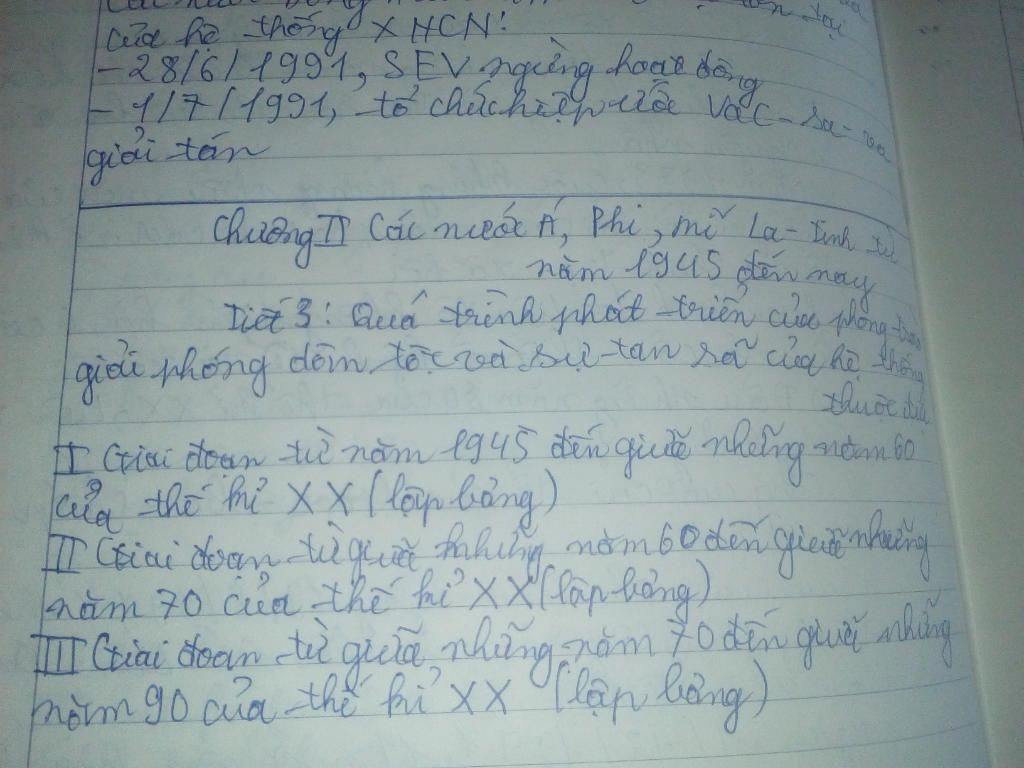 của hệ thống XHCN:
- 28/6/1991, SEV ngừng hoạt động
- 1/7/1991, tổ chức hiệp ước Vác-sa-va
giải tán
Chương II Các nước Á, Phi, mĩ La-tinh từ
năm 1945 đến nay
Tiết 3: Quá trình phát triển của phong trào
giải phóng dân tộc và sự tan rã của hệ thống
thuộc địa
I Giai đoạn từ năm 1945 đến giữa những năm 60
của thế kỉ XX (lập bảng)
II Giai đoạn từ giữa những năm 60 đến giữa những
năm 70 của thế kỉ XX (lập bảng)
III Giai đoạn từ giữa những năm 70 đến giữa những
năm 90 của thế kỉ XX (lập bảng)